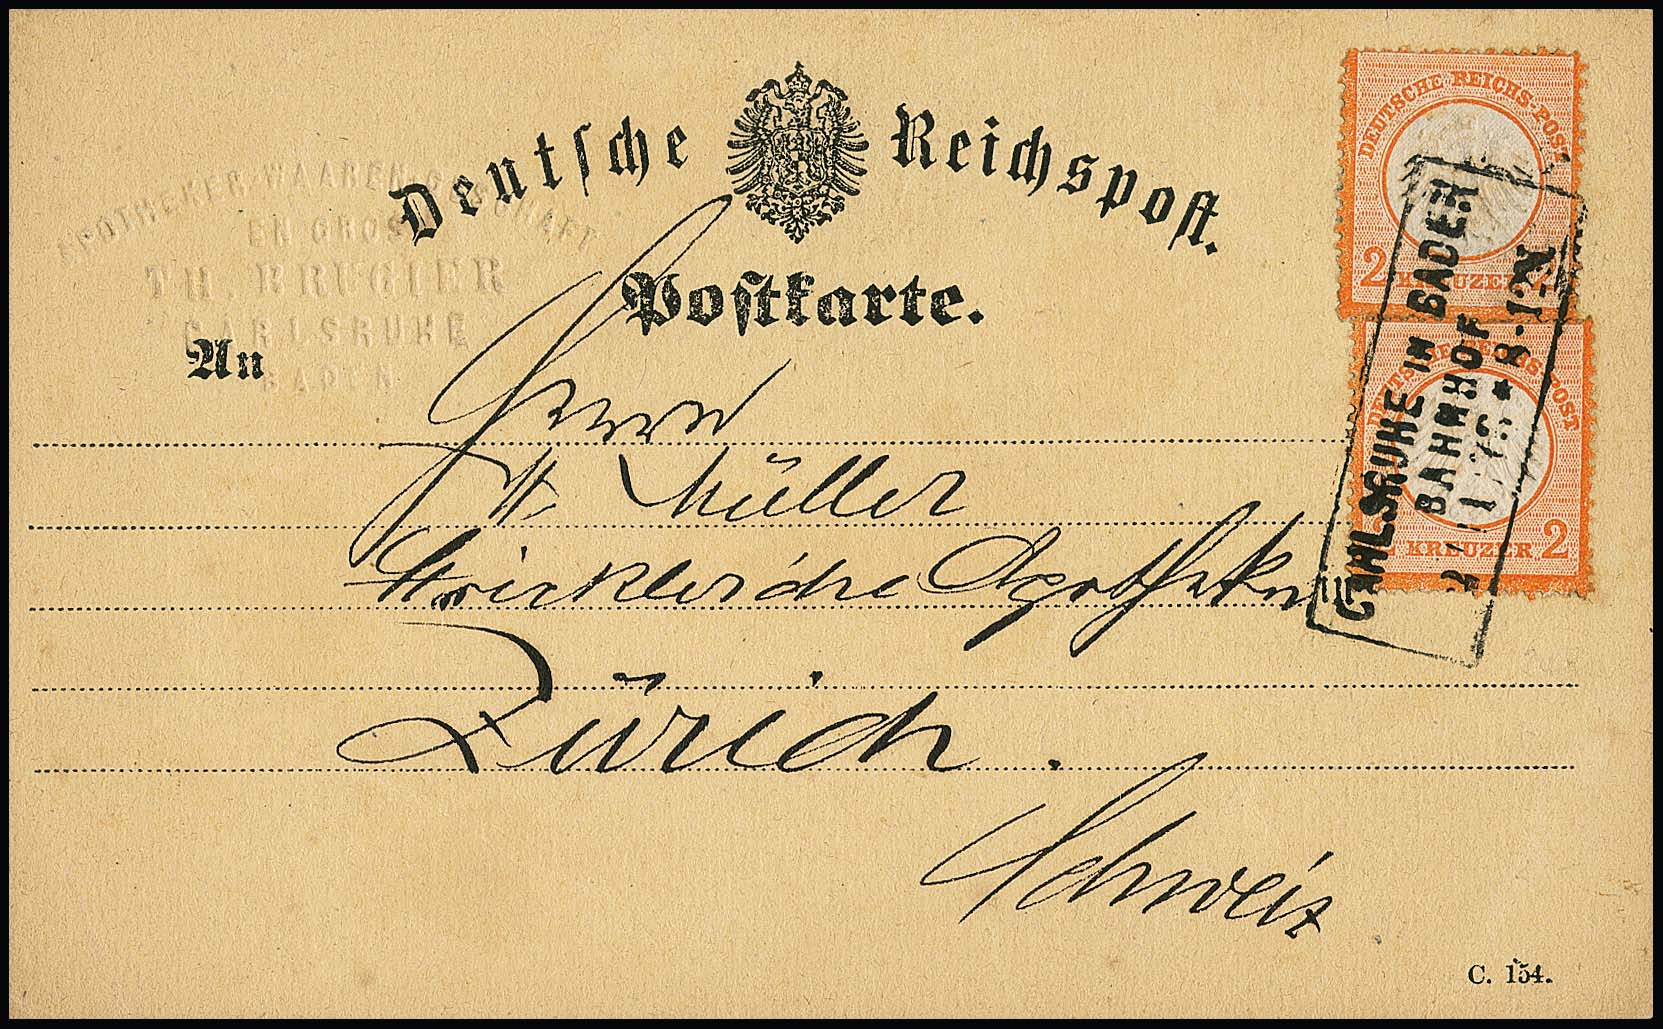 Deutsche Reichspost.
Postkarte.
APOTHEKER-WAAREN-GESCHAEFT
EN GROS
TH. BRUGIER
CARLSRUHE
BADEN
An
Herrn
H. Müller
Strickler'sche Apotheke
Zürich.
Schweiz
C. 154.
DEUTSCHE REICHS-POST
2 KREUZER 2
DEUTSCHE REICHS-POST
2 KREUZER 2
CARLSRUHE IN BADEN
BAHNHOF
8-12N